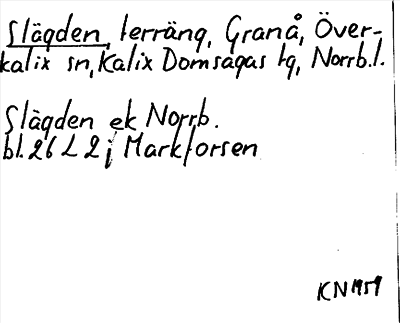 Slägden, terräng, Granå, Över-
kalix sn, Kalix Domsagas tg, Norrb.l.
Slägden ek Norrb.
bl. 26 L 2 j Markforsen
KN 1959